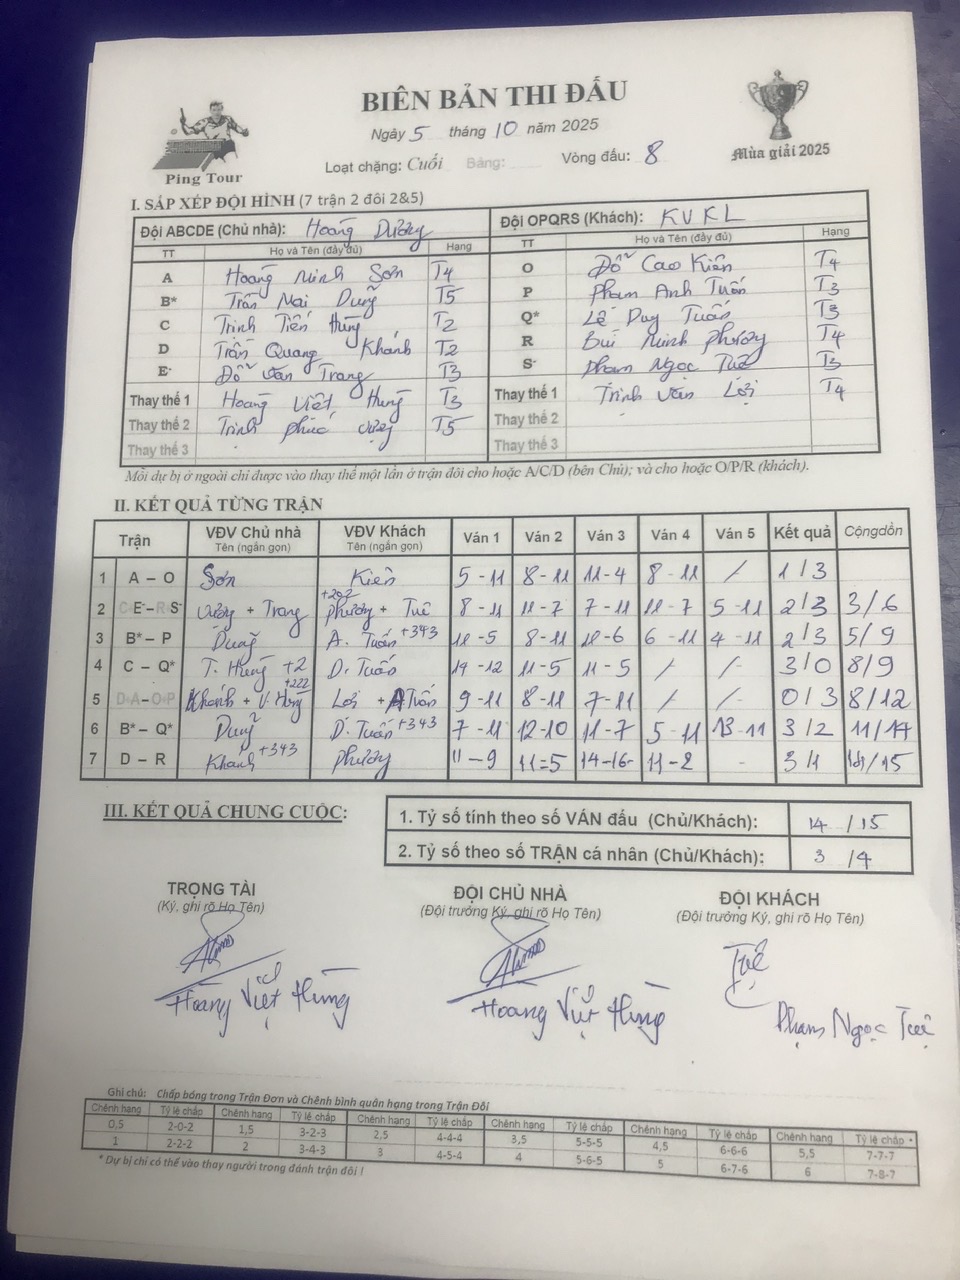 BIÊN BẢN THI ĐẤU
Ngày 5 tháng 10 năm 2025
Loạt chặng: Cuối Bảng: Vòng đấu: 8
Ping Tour
Mùa giải 2025
I. SẮP XẾP ĐỘI HÌNH (7 trận 2 đôi 2&5)
Đội ABCDE (Chủ nhà): Hoàng Dương Đội OPQRS (Khách): KVKL
TT Họ và Tên (đầy đủ) Hạng TT Họ và Tên (đầy đủ) Hạng
A Hoàng Minh Sơn T4 O Đỗ Cao Kiên T4
B* Trần Mai Dung T5 P Phạm Anh Tuấn T3
C Trịnh Tiến Hùng T2 Q* Lê Duy Tuấn T3
D Trần Quang Khánh T2 R Bùi Minh Phương T4
E- Đỗ Văn Trang T3 S- Phạm Ngọc Tuệ T3
Thay thế 1 Hoàng Việt Hùng T3 Thay thế 1 Trịnh Văn Lợi T4
Thay thế 2 Trịnh Phúc Vượng T5 Thay thế 2
Thay thế 3 Thay thế 3
Mỗi dự bị ở ngoài chỉ được vào thay thế một lần ở trận đôi cho hoặc A/C/D (bên Chủ); và cho hoặc O/P/R (khách).
II. KẾT QUẢ TỪNG TRẬN
Trận VĐV Chủ nhà Tên (ngắn gọn) VĐV Khách Tên (ngắn gọn) Ván 1 Ván 2 Ván 3 Ván 4 Ván 5 Kết quả Cộngdồn
1 A – O Sơn Kiên 5-11 8-11 11-4 8-11 / 1/3
2 C E- – R S- Vượng + Trang +202 Phương + Tuệ 8-11 11-7 7-11 11-7 5-11 2/3 3/6
3 B* – P Dung A. Tuấn +343 11-5 8-11 11-6 6-11 4-11 2/3 5/9
4 C – Q* T. Hùng +2 D. Tuấn 14-12 11-5 11-5 / /- 3/0 8/9
5 D A – O P Khánh + V. Hùng +222 Lợi + A Tuấn 9-11 8-11 7-11 / /- 0/3 8/12
6 B* – Q* Dung D. Tuấn +343 7-11 12-10 11-7 5-11 13-11 3/2 11/14
7 D – R Khánh +343 Phương 11-9 11=5 14-16 11-2 - 3/1 14/15
III. KẾT QUẢ CHUNG CUỘC:
1. Tỷ số tính theo số VÁN đấu (Chủ/Khách): 14 /15
2. Tỷ số theo số TRẬN cá nhân (Chủ/Khách): 3 /4
TRỌNG TÀI ĐỘI CHỦ NHÀ ĐỘI KHÁCH
(Ký, ghi rõ Họ Tên) (Đội trưởng Ký, ghi rõ Họ Tên) (Đội trưởng Ký, ghi rõ Họ Tên)
Tuệ
Hoàng Việt Hùng Hoàng Việt Hùng Phạm Ngọc Tuệ
Ghi chú: Chấp bóng trong Trận Đơn và Chênh bình quân hạng trong Trận Đôi
Chênh hạng Tỷ lệ chấp Chênh hạng Tỷ lệ chấp Chênh hạng Tỷ lệ chấp Chênh hạng Tỷ lệ chấp Chênh hạng Tỷ lệ chấp Chênh hạng Tỷ lệ chấp *
0,5 2-0-2 1,5 3-2-3 2,5 4-4-4 3,5 5-5-5 4,5 6-6-6 5,5 7-7-7
1 2-2-2 2 3-4-3 3 4-5-4 4 5-6-5 5 6-7-6 6 7-8-7
* Dự bị chỉ có thể vào thay người trong đánh trận đôi !